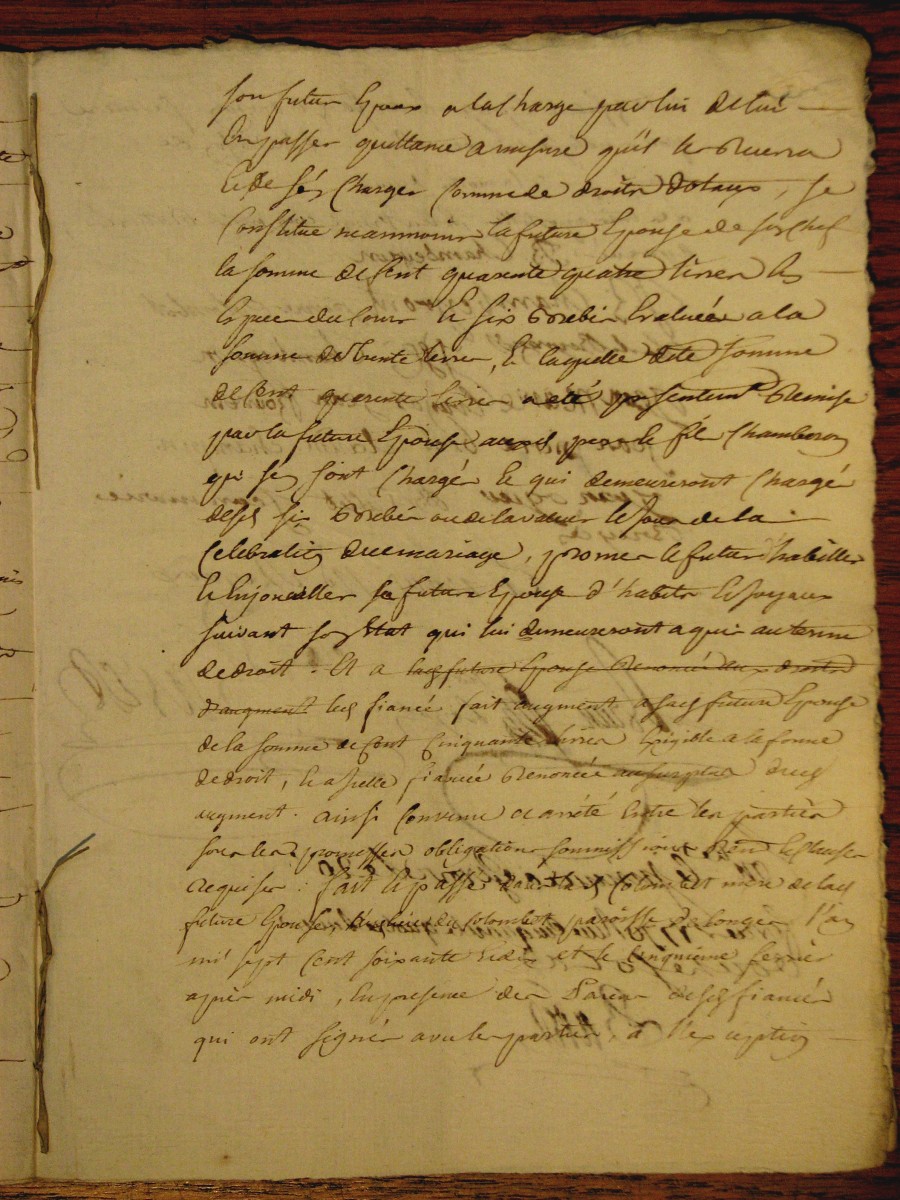 son futur Epoux a la charge par lui de lui
En passer quittance a mesure qu'il le Recevra
Et de s'en Charger comme de droits dotaux, se
Constitue neanmoins la future Epouse de son Chef
la somme de Cent quarente quatre livres les
Especes du Cours Et six Brebis Evaluées a la
somme de trente livres, Et laquelle dete somme
de Cent quarente livres a eté presentemt Remise
par la future Epouse aux pere Et fils Chamboron
qui se sont Chargé Et qui demeureront Chargé
desd six Brebis ou de la valeur le Jour de la
Celebration du mariage, promet le futur habiller
Et Enjoueller sa future Epouse d'habits Et Joyaux
suivant son Etat qui lui demeureront aquis au terme
de droit. Et a lad future Epouse Renoncé aux droits
d'augment led fiancé fait augment a sad future Epouse
de la somme de Cent Cinquante livres Exigible a la forme
de droit, Et a lad fiancée Renoncée au surplus dud
augment. ainsi Convenu et arrêté Entre les parties
sous les promesses obligations soummissions Ren Et Clauses
Requises: fait Et passé mere de lad
future Epouse du Colombet paroisse de l'an
mil sept Cent soixante et le Cinquieme fevrier
après midi, En presence des desd fiancés
qui ont signés avec les parties, a l'exception